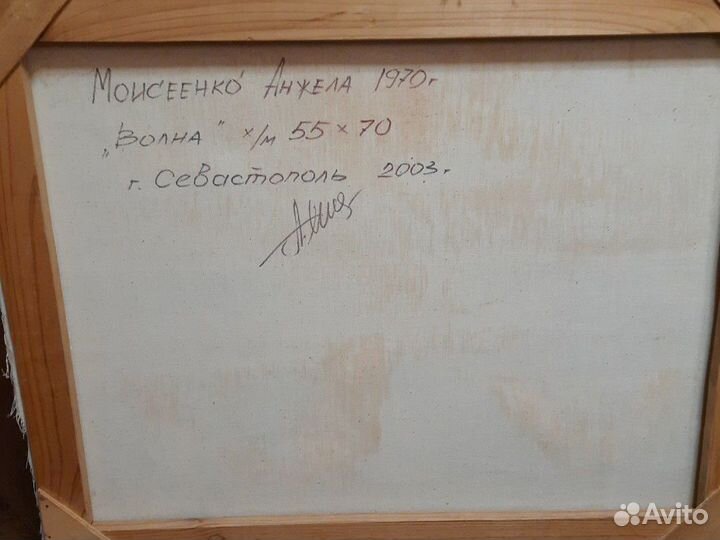 Моисеенко Анжела 1970г
„Волна" х/м 55 х 70
г. Севастополь 2003г.
Avito